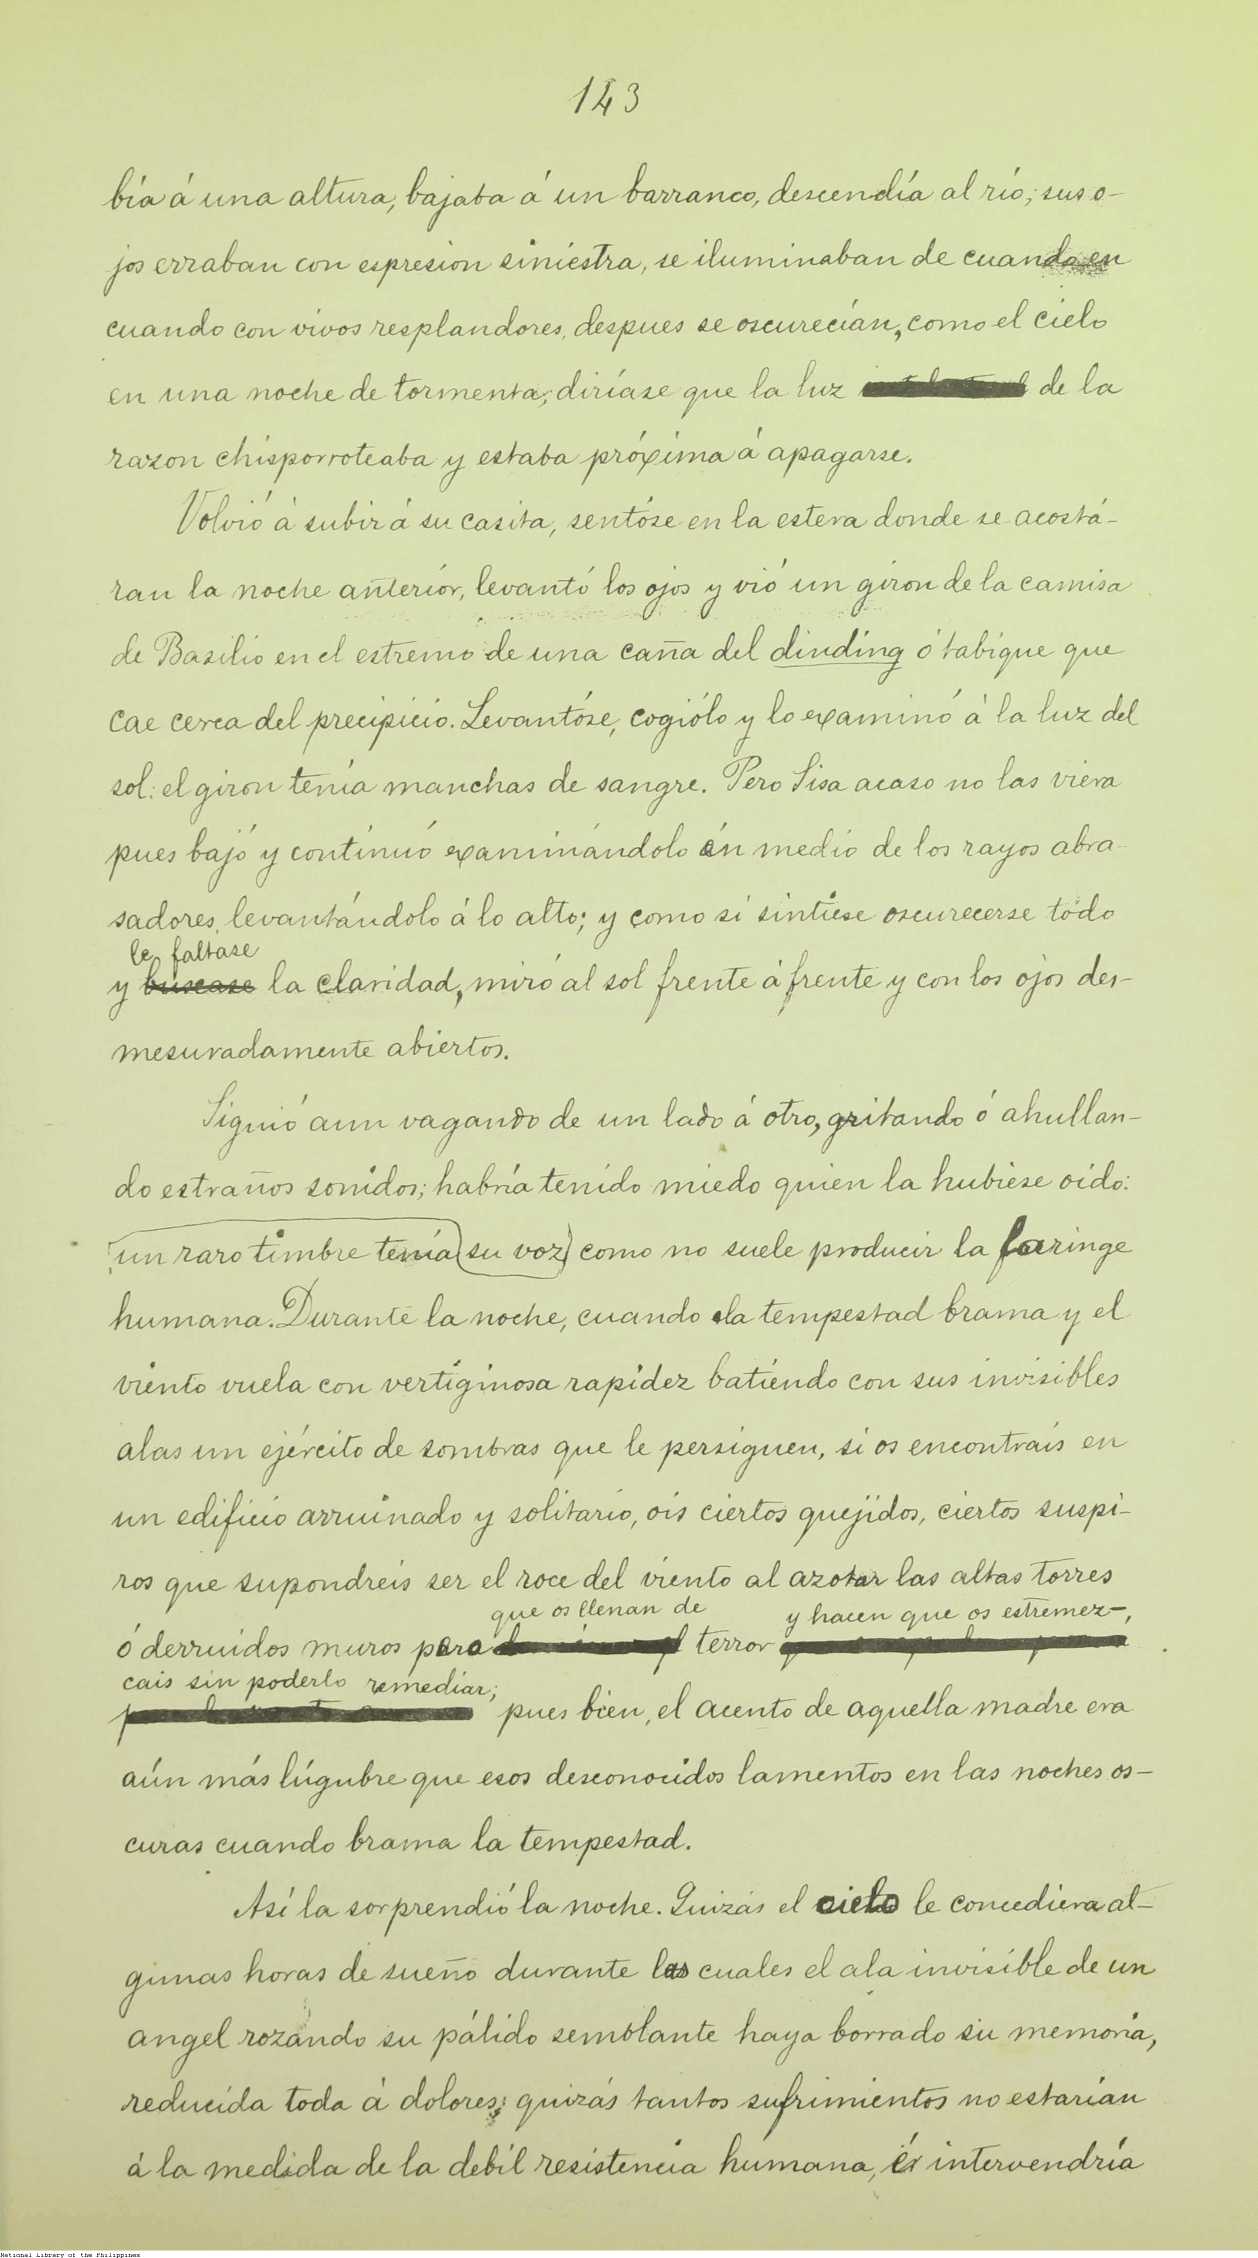 143
bía á una altura, bajaba á un barranco, descendía al río; sus o-
jos erraban con espresion siniestra, se iluminaban de cuando en
cuando con vivos resplandores, despues se oscurecían, como el cielo
en una noche de tormenta; diríase que la luz de la
razon chisporroteaba y estaba próxima á apagarse.
Volvió á subir á su casita, sentóse en la estera donde se acostá-
ran la noche anterior, levantó los ojos y vió un giron de la camisa
de Basilio en el estremo de una caña del dinding ó tabique que
cae cerca del precipicio. Levantóse, cogiólo y lo examinó á la luz del
sol: el giron tenía manchas de sangre. Pero Sisa acaso no las viera
pues bajó y continuó examinándolo en medio de los rayos abra-
sadores, levantándolo á lo alto; y como si sintiese oscurecerse todo
le faltase
y buscase la claridad, miró al sol frente á frente y con los ojos des-
mesuradamente abiertos.
Siguió aun vagando de un lado á otro, gritando ó ahullan-
do estraños sonidos; habría tenido miedo quien la hubiese oido:
un raro timbre tenía su voz como no suele producir la laringe
humana. Durante la noche, cuando la tempestad brama y el
viento vuela con vertiginosa rapidez batiendo con sus invisibles
alas un ejército de sombras que le persiguen, si os encontrais en
un edificio arruinado y solitario, ois ciertos quejidos, ciertos suspi-
ros que supondreis ser el roce del viento al azotar las altas torres
que os llenan de y hacen que os estremez-
ó derruidos muros pero terror
cais sin poderlo remediar;
pues bien, el acento de aquella madre era
aún más lúgubre que esos desconocidos lamentos en las noches os-
curas cuando brama la tempestad.
Así la sorprendió la noche. Quizás el cielo le concediera al-
gunas horas de sueño durante las cuales el ala invisible de un
angel rozando su pálido semblante haya borrado su memoria,
reducida toda á dolores; quizás tantos sufrimientos no estarían
á la medida de la debil resistencia humana, é intervendría
National Library of the Philippines